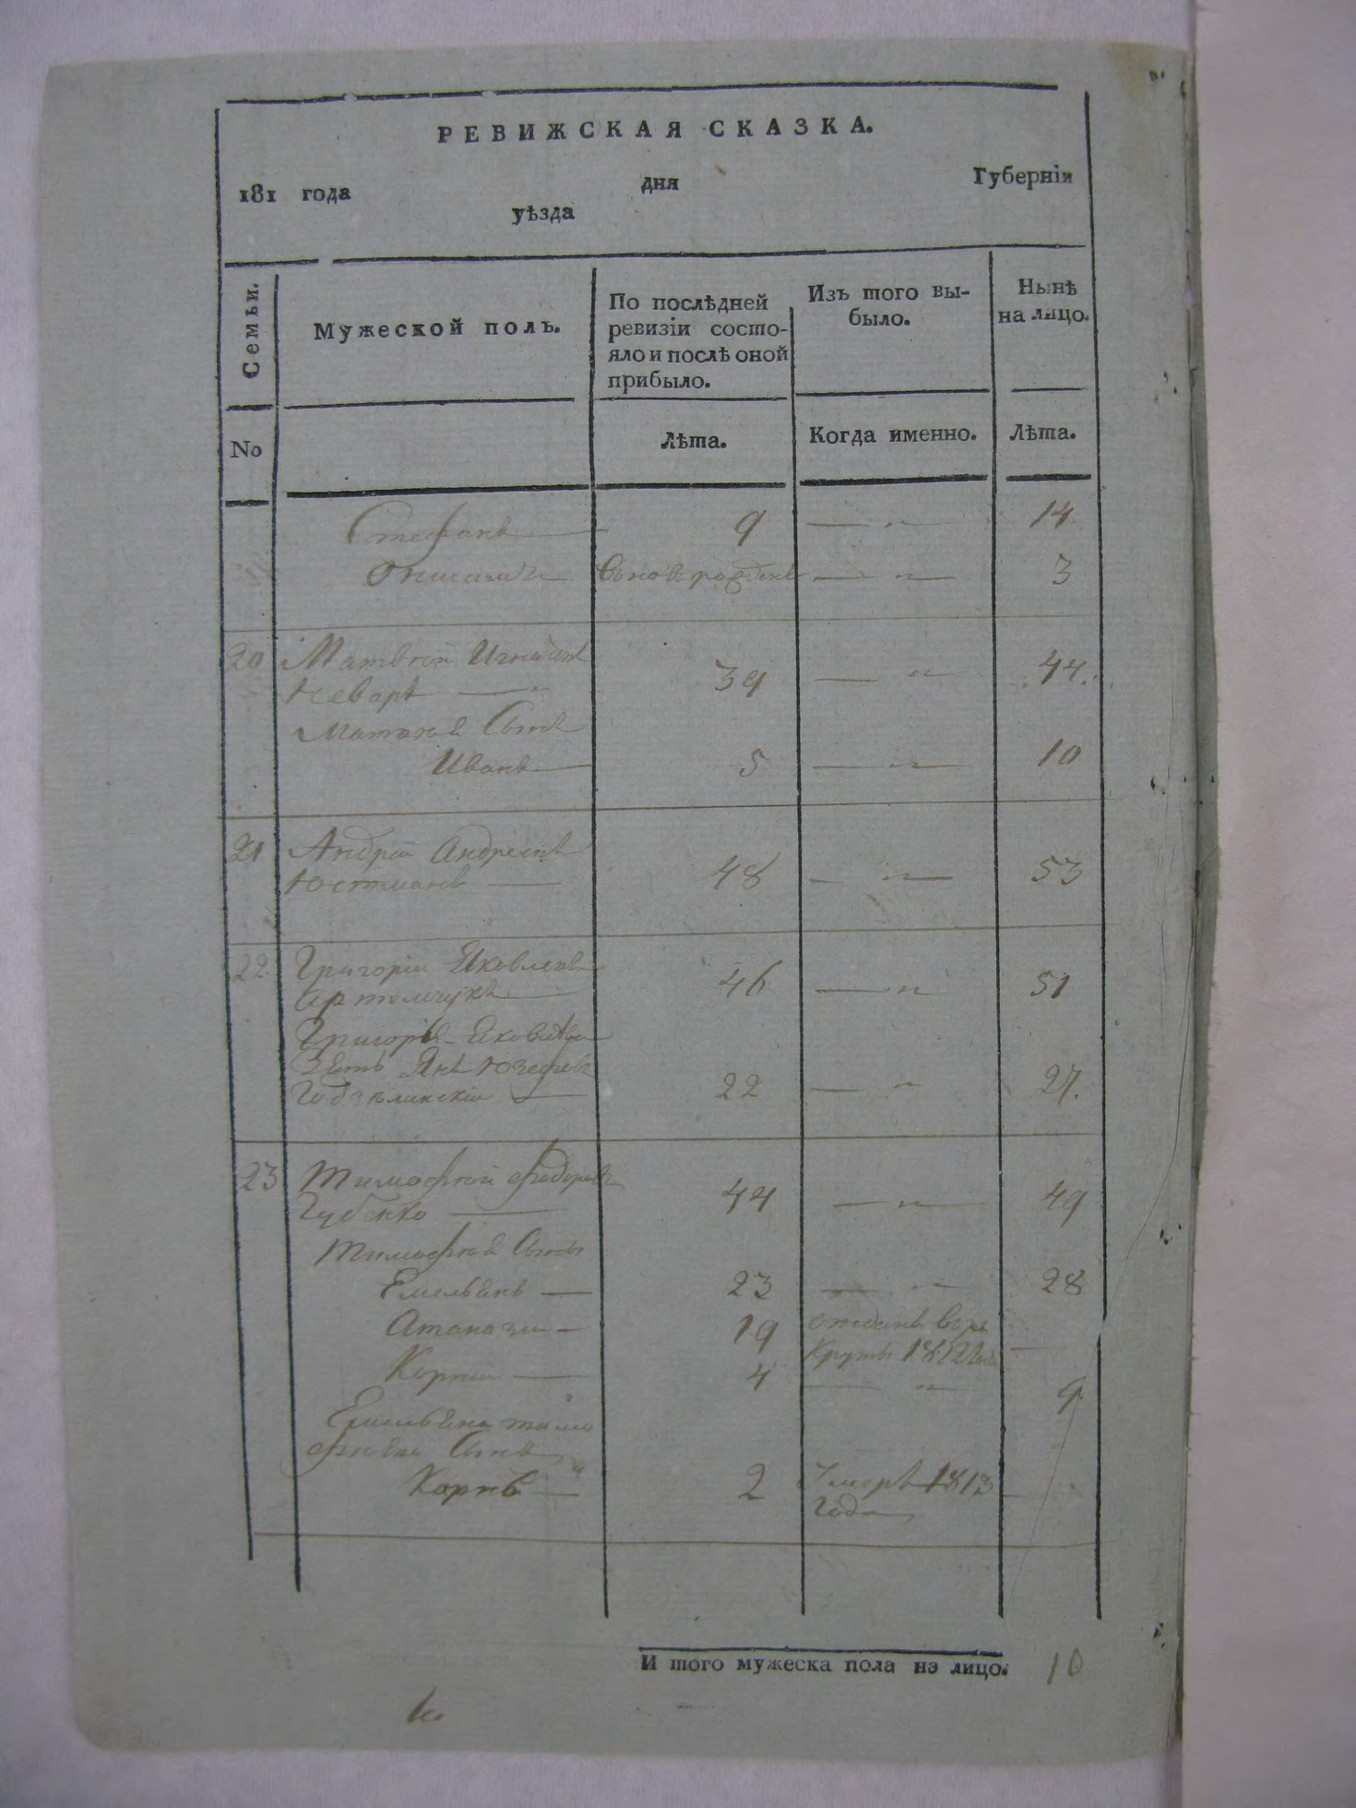 РЕВИЖСКАЯ СКАЗКА.
181 года дня Губерніи
уѣзда
Семьи.
Мужеской полъ.
По послѣдней ревизіи состо-яло и послѣ оной прибыло.
Изъ того вы-было.
Нынѣ на лицо.
No
Лѣта.
Когда именно.
Лѣта.
Стефанъ 9 — „ — 14
Онисимъ вновь рожденъ — „ — 3
20 Матвѣй
39 — „ — 44
Сынъ
Иванъ 5 — „ — 10
21 Андрей Андреевъ
48 — „ — 53
22 Григорій Яковлевъ
Артемчукъ 46 — „ — 51
Зять Янъ Юзефовъ
22 — „ — 27.
23 Тимофей Федоровъ
Губенко 44 — „ — 49
Тимофея Сыны
Емельянъ — 23 — „ — 28
Атаназій — 19 отданъ въ ре
круты 1812 —
Корній — 4 — „ — 9
Емельяна Тимо
феева Сынъ
Карпъ — 2 Умеръ 1813
года
И того мужеска пола на лицо. 10